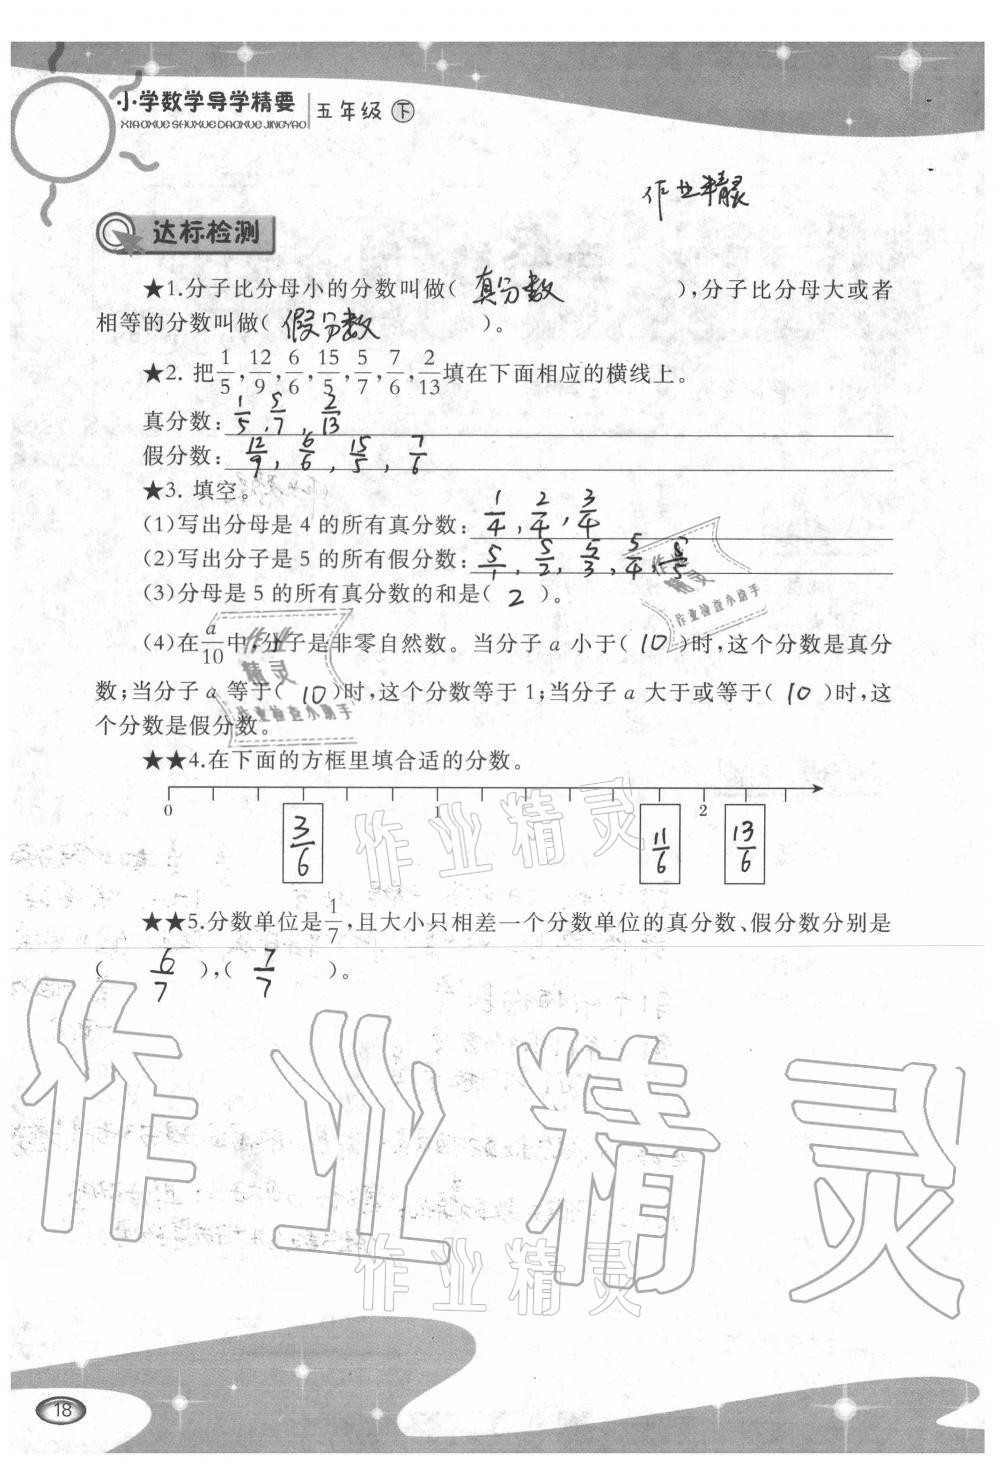 小学数学导学精要 五年级 下
XIAOXUE SHUXUE DAOXUE JINGYAO
作业精灵
达标检测
★1.分子比分母小的分数叫做( 真分数 ),分子比分母大或者
相等的分数叫做( 假分数 )。
★2. 把1/5,12/9,6/6,15/5,5/7,7/6,2/13填在下面相应的横线上。
真分数: 1/5, 5/7, 2/13
假分数: 12/9, 6/6, 15/5, 7/6
★3. 填空。
(1)写出分母是 4 的所有真分数: 1/4, 2/4, 3/4
(2)写出分子是 5 的所有假分数: 5/1, 5/2, 5/3, 5/4, 5/5
(3)分母是 5 的所有真分数的和是( 2 )。
(4)在a/10中,分子是非零自然数。当分子 a 小于( 10 )时,这个分数是真分
数;当分子 a 等于( 10 )时,这个分数等于 1;当分子 a 大于或等于( 10 )时,这
个分数是假分数。
★★4.在下面的方框里填合适的分数。
0 1 2
3/6 11/6 13/6
★★5.分数单位是1/7,且大小只相差一个分数单位的真分数、假分数分别是
( 6/7 ),( 7/7 )。
作业精灵
作业检查小助手
作业精灵
作业检查小助手
作业精灵
作业精灵
作业精灵
18